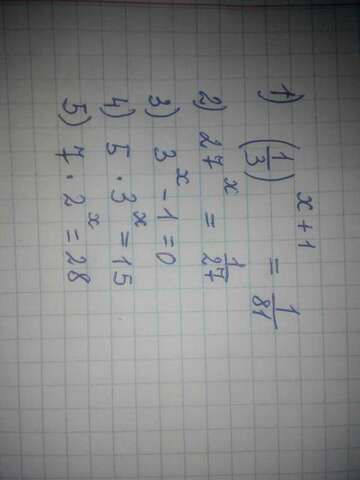 1) (1/3)^(x+1) = 1/81
2) 27^x = 1/27
3) 3^x - 1 = 0
4) 5 · 3^x = 15
5) 7 · 2^x = 28